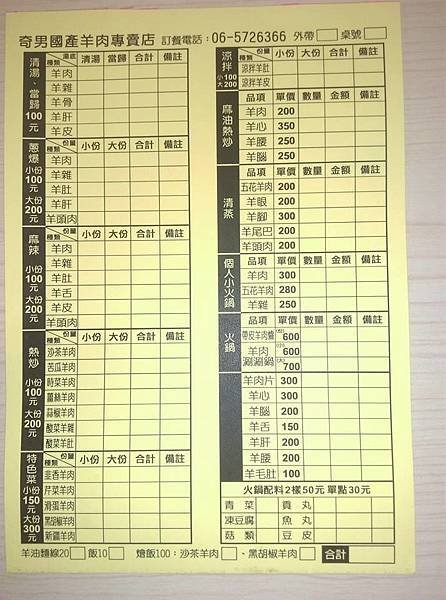 奇男國產羊肉專賣店 訂餐電話:06-5726366 外帶 桌號
清湯、當歸 100元
湯底 種類 清湯 當歸 合計 備註
羊肉
羊雜
羊骨
羊肝
羊皮
蔥爆 小份100元 大份200元
份量 種類 小份 大份 合計 備註
羊肉
羊雜
羊肚
羊肝
羊頭肉
麻辣 小份100元 大份200元
份量 種類 小份 大份 合計 備註
羊肉
羊雜
羊肚
羊舌
羊皮
羊頭肉
熱炒 小份100元 大份200元
份量 種類 小份 大份 合計 備註
沙茶羊肉
苦瓜羊肉
時菜羊肉
薑絲羊肉
蒜椒羊肉
酸菜羊雜
酸菜羊肚
特色菜 小份150元 大份300元
份量 種類 小份 大份 合計 備註
韭香羊肉
芹菜羊肉
滑蛋羊肉
黑胡椒羊肉
新疆羊肉
涼拌 小100 大200
份量 種類 小份 大份 合計 備註
涼拌羊肚
涼拌羊皮
麻油熱炒
品項 單價 數量 金額 備註
羊肉 200
羊心 350
羊腰 250
羊腦 250
清蒸
品項 單價 數量 金額 備註
五花羊肉 200
羊眼 200
羊腳 300
羊尾巴 200
羊頭肉 200
個人小火鍋
品項 單價 數量 金額 備註
羊肉 300
五花羊肉 280
羊雜 250
火鍋
品項 單價 數量 金額 備註
帶皮羊肉爐 600
羊肉涮涮鍋 (小) 600
(大) 700
羊肉片 300
羊心 300
羊腦 200
羊舌 150
羊肝 200
羊腰 200
羊毛肚 100
火鍋配料2樣50元 單點30元
青菜 貢丸
凍豆腐 魚丸
菇類 豆皮
羊油麵線20 飯10 燴飯100:沙茶羊肉 、黑胡椒羊肉 合計